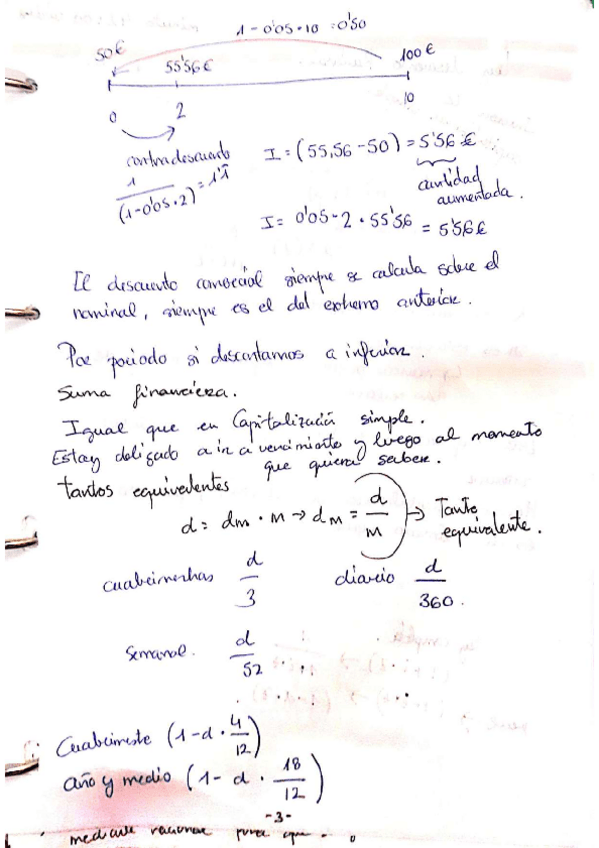 1 - 0'05 · 10 = 0'50
50€ 55'56€ 100€
0 2 10
contradescuento
1 / (1-0'05·2) = 1'1̂
I = (55,56 - 50) = 5'56 €
cantidad aumentada.
I = 0'05 · 2 · 55'56 = 5'56€
El descuento comercial siempre se calcula sobre el
nominal, siempre es el del extremo anterior.
Por periodo si descontamos a inferior.
Suma financiera.
Igual que en Capitalización simple.
Estoy obligado a ir a vencimiento y luego al momento
que quiera saber.
tantos equivalentes
d = dm · m → dm = d/m → Tanto
equivalente.
d/3 diario d/360.
Semanal. d/52
Cuatrimeste (1-d · 4/12)
año y medio (1- d · 18/12)
-3-
mediante